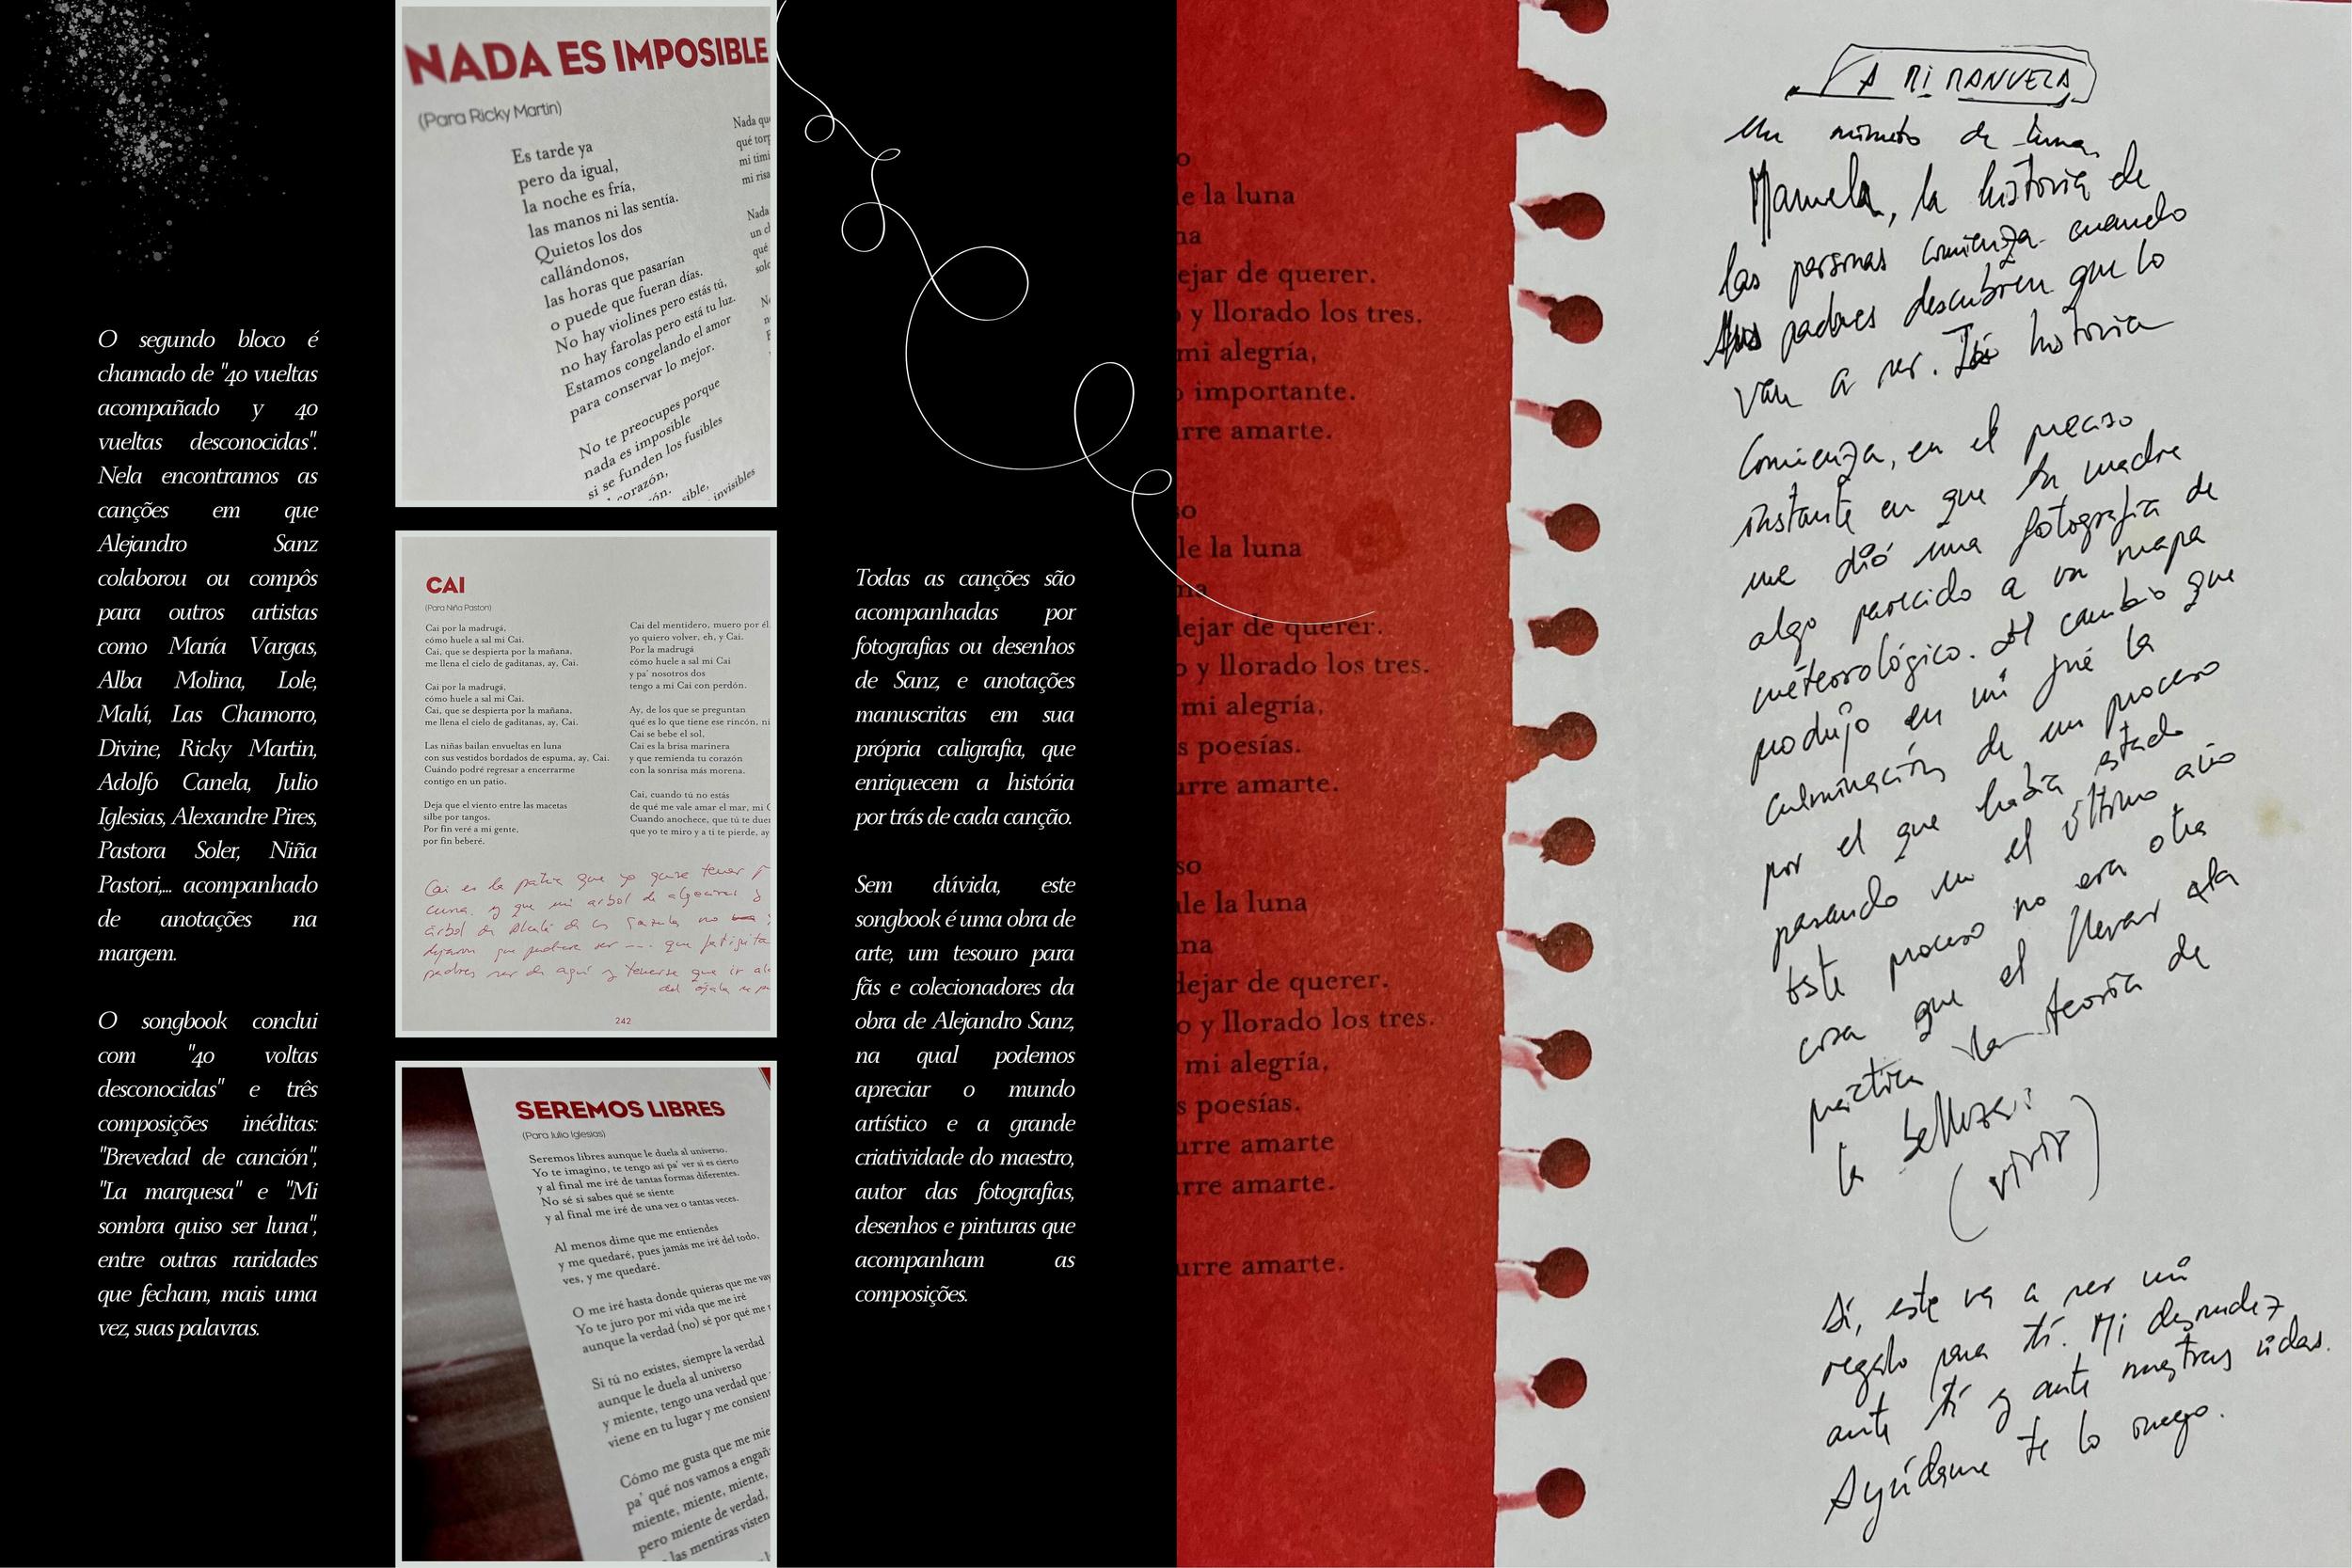 O segundo bloco é
chamado de "40 vueltas
acompañado y 40
vueltas desconocidas".
Nela encontramos as
canções em que
Alejandro Sanz
colaborou ou compôs
para outros artistas
como María Vargas,
Alba Molina, Lole,
Malú, Las Chamorro,
Divine, Ricky Martin,
Adolfo Canela, Julio
Iglesias, Alexandre Pires,
Pastora Soler, Niña
Pastori,... acompanhado
de anotações na
margem.
O songbook conclui
com "40 voltas
desconocidas" e três
composições inéditas:
"Brevedad de canción",
"La marquesa" e "Mi
sombra quiso ser luna",
entre outras raridades
que fecham, mais uma
vez, suas palavras.
NADA ES IMPOSIBLE
(Para Ricky Martin)
Es tarde ya
pero da igual,
la noche es fría,
las manos ni las sentía.
Quietos los dos
callándonos,
las horas que pasarían
o puede que fueran días.
No hay violines pero estás tú,
no hay farolas pero está tu luz.
Estamos congelando el amor
para conservar lo mejor.
No te preocupes porque
nada es imposible
si se funden los fusibles
corazón,
Nada
mi risa
Nada
qué
CAI
(Para Niña Pastori)
Cai por la madrugá,
cómo huele a sal mi Cai.
Cai, que se despierta por la mañana,
me llena el cielo de gaditanas, ay, Cai.
Cai por la madrugá,
cómo huele a sal mi Cai.
Cai, que se despierta por la mañana,
me llena el cielo de gaditanas, ay, Cai.
Las niñas bailan envueltas en luna
con sus vestidos bordados de espuma, ay, Cai.
Cuándo podré regresar a encerrarme
contigo en un patio.
Deja que el viento entre las macetas
silbe por tangos.
Por fin veré a mi gente,
por fin beberé.
Cai del mentidero, muero por él
yo quiero volver, eh, y Cai.
Por la madrugá
cómo huele a sal mi Cai
y pa' nosotros dos
tengo a mi Cai con perdón.
Ay, de los que se preguntan
qué es lo que tiene ese rincón, ni
Cai se bebe el sol,
Cai es la brisa marinera
y que remienda tu corazón
con la sonrisa más morena.
Cai, cuando tú no estás
de qué me vale amar el mar, mi
Cuando anochece, que tú te
que yo te miro y a ti te pierde, ay
Cai es la patria que yo quise tener
cuna. y que mi arbol de
árbol de Alcalá de los Gazules no
que
padres ser de aquí y tenerse que ir
242
SEREMOS LIBRES
(Para Julio Iglesias)
Seremos libres aunque le duela al universo.
Yo te imagino, te tengo así pa' ver si es cierto
y al final me iré de tantas formas diferentes.
No sé si sabes qué se siente
y al final me iré de una vez o tantas veces.
Al menos dime que me entiendes
y me quedaré, pues jamás me iré del todo,
ves, y me quedaré.
O me iré hasta donde quieras que me
Yo te juro por mi vida que me iré
aunque la verdad (no) sé por qué me
Si tú no existes, siempre la verdad
aunque le duela al universo
y miente, tengo una verdad que
viene en tu lugar y me
Cómo me gusta que me
pa' qué nos vamos a
miente, miente, miente,
pero miente de verdad,
las mentiras visten
Todas as canções são
acompanhadas por
fotografias ou desenhos
de Sanz, e anotações
manuscritas em sua
própria caligrafia, que
enriquecem a história
por trás de cada canção.
Sem dúvida, este
songbook é uma obra de
arte, um tesouro para
fãs e colecionadores da
obra de Alejandro Sanz,
na qual podemos
apreciar o mundo
artístico e a grande
criatividade do maestro,
autor das fotografias,
desenhos e pinturas que
acompanham as
composições.
la luna
na
ejar de querer.
y llorado los tres.
mi alegría,
importante.
rre amarte.
so
le la luna
na
lejar de querer.
o y llorado los tres.
mi alegría,
s poesías.
urre amarte.
so
le la luna
na
lejar de querer.
o y llorado los tres.
mi alegría,
s poesías.
urre amarte
rre amarte.
urre amarte.
A MI MANUELA
Un minuto de
Manuela, la historia de
las personas comienza cuando
sus padres descubren que lo
van a ser. historia
Comienza, en el preciso
instante en que tu madre
me dió una fotografía de
algo parecido a un mapa
meteorológico. El cambio que
produjo en mi fué la
culminación de un proceso
por el que había estado
pasando en el último año
Este proceso no era otra
cosa que el llevar a la
práctica la teoría de
la belleza:
(vivir)
Sí, este va a ser mi
regalo para tí. Mi desnudez
ante tí y ante nuestras vidas.
Ayúdame te lo ruego.